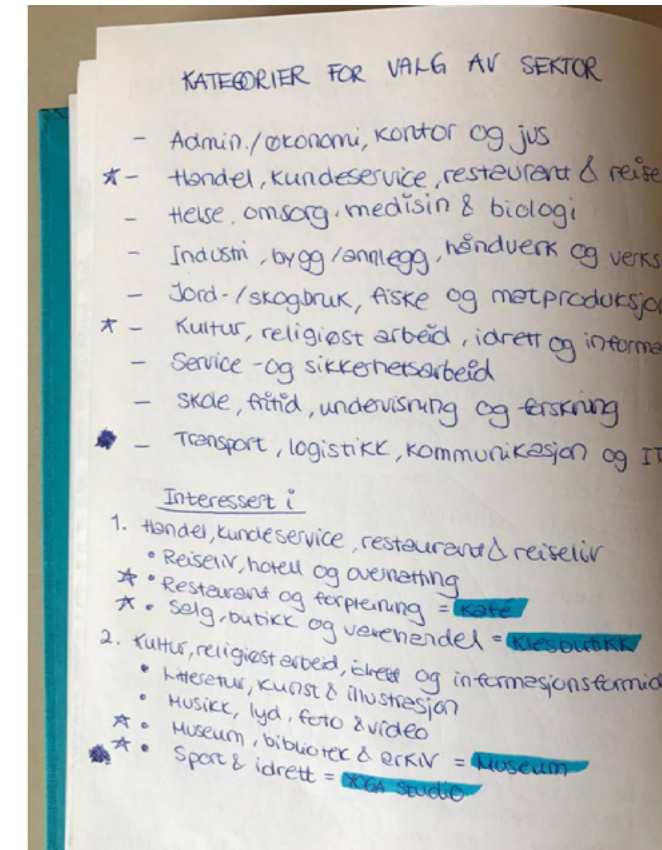 KATEGORIER FOR VALG AV SEKTOR
- Admin./økonomi, kontor og jus
☆ - Handel, kundeservice, restaurant & reise
- Helse, omsorg, medisin & biologi
- Industri, bygg/anlegg, håndverk og verks
- Jord-/skogbruk, fiske og matproduksjon
☆ - Kultur, religiøst arbeid, idrett og informa
- Service-og sikkerhetsarbeid
- Skole, fritid, undervisning og forskning
- Transport, logistikk, kommunikasjon og IT
Interessert i
1. Handel, kundeservice, restaurant & reiseliv
• Reiseliv, hotell og overnatting
☆ • Restaurant og forpleining = Kafé
☆ • Salg, butikk og varehandel = Klesbutikk
2. Kultur, religiøst arbeid, idrett og informasjonsformid
• Litteratur, kunst & illustrasjon
• Musikk, lyd, foto & video
☆ • Museum, bibliotek & arkiv = Museum
☆ • Sport & idrett = YOGA Studio